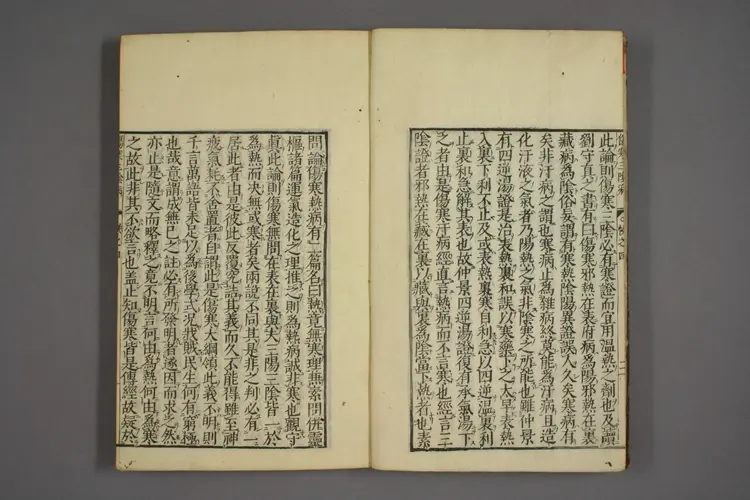 此論則傷寒三陰必有寒證而宜用溫熱之劑也及讀
劉守真之書有曰傷寒邪熱在表府病為陽邪熱在裏
藏病為陰俗妄謂有寒熱陰陽異證誤人久矣寒病有
矣非汗病之謂也寒病止為雜病終莫能為汗病且造
化汗液之氣者乃陽熱之氣非陰寒之所能也雖仲景
有四逆湯證是治表熱裏和誤以寒藥下之太早表熱
入裏下利不止及或表熱裏寒自利急以四逆溫裏利
止裏和急解其表也故仲景四逆湯證復有承氣湯下
之者由是傷寒汗病經直言熱病而不言寒也經言三
陰證者邪熱在藏在裏以藏與裏為陰當下熱者也素
問論傷寒熱病有二篇名曰熱竟無寒理兼素問併靈
樞諸篇運氣造化之理推之則為熱病誠非寒也觀守
真此論則傷寒無問在表在裏與夫三陽三陰皆一於
為熱而決無或寒者矣兩說不同其是非之判必有一
居此者由是彼此反覆究詰其義而久不能得雖至神
疲氣耗不舍置者自謂此是傷寒大綱領此義不明則
千言萬語皆未足以為後學式況戕賊民生何有窮極
也哉意謂成無已之註必有所發明者遂因而求之然
亦止是隨文而略釋之竟不明言何由為熱何由為寒
之故此非其不欲言也蓋止知傷寒皆是傳經故疑於